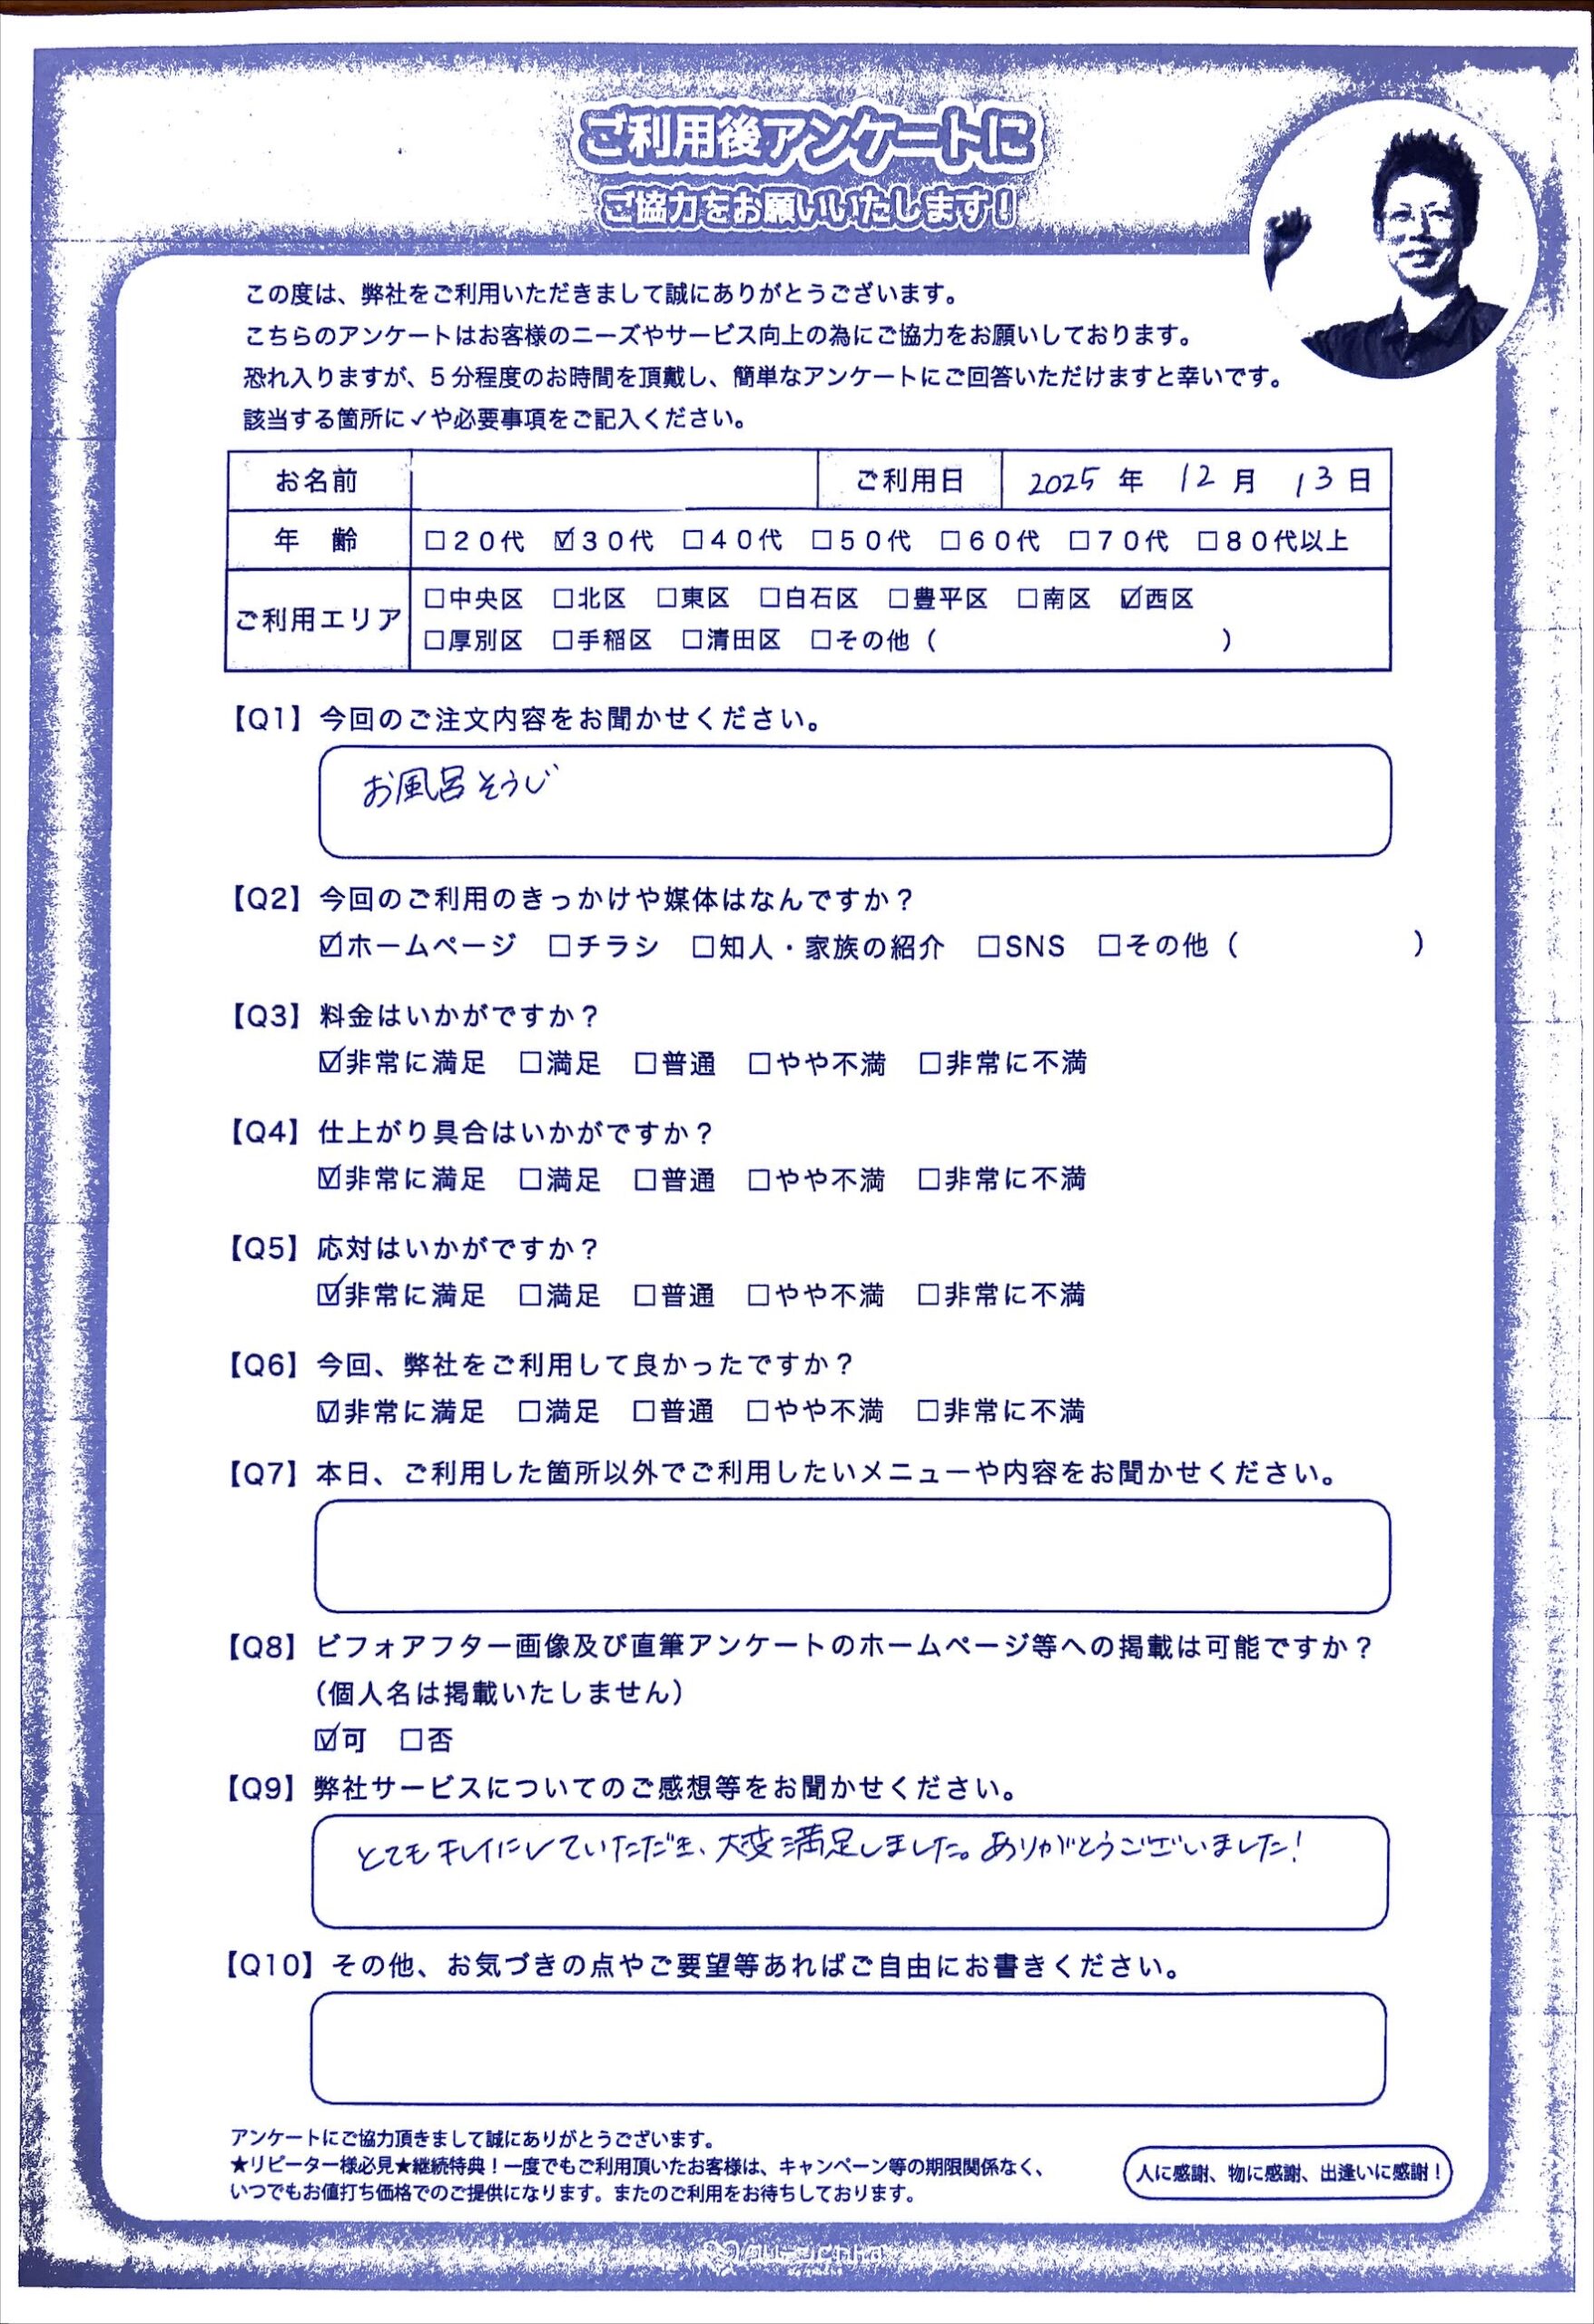 ご利用後アンケートに
ご協力をお願いいたします!
この度は、弊社をご利用いただきまして誠にありがとうございます。
こちらのアンケートはお客様のニーズやサービス向上の為にご協力をお願いしております。
恐れ入りますが、5分程度のお時間を頂戴し、簡単なアンケートにご回答いただけますと幸いです。
該当する箇所に✓や必要事項をご記入ください。
お名前 ご利用日 2025 年 12 月 13 日
年 齢 □20代 ☑30代 □40代 □50代 □60代 □70代 □80代以上
ご利用エリア □中央区 □北区 □東区 □白石区 □豊平区 □南区 ☑西区
□厚別区 □手稲区 □清田区 □その他( )
【Q1】今回のご注文内容をお聞かせください。
お風呂そうじ
【Q2】今回のご利用のきっかけや媒体はなんですか?
☑ホームページ □チラシ □知人・家族の紹介 □SNS □その他( )
【Q3】料金はいかがですか?
☑非常に満足 □満足 □普通 □やや不満 □非常に不満
【Q4】仕上がり具合はいかがですか?
☑非常に満足 □満足 □普通 □やや不満 □非常に不満
【Q5】応対はいかがですか?
☑非常に満足 □満足 □普通 □やや不満 □非常に不満
【Q6】今回、弊社をご利用して良かったですか?
☑非常に満足 □満足 □普通 □やや不満 □非常に不満
【Q7】本日、ご利用した箇所以外でご利用したいメニューや内容をお聞かせください。
【Q8】ビフォアフター画像及び直筆アンケートのホームページ等への掲載は可能ですか?
(個人名は掲載いたしません)
☑可 □否
【Q9】弊社サービスについてのご感想等をお聞かせください。
とてもキレイにしていただき、大変満足しました。ありがとうございました!
【Q10】その他、お気づきの点やご要望等あればご自由にお書きください。
アンケートにご協力頂きまして誠にありがとうございます。
★リピーター様必見★継続特典!一度でもご利用頂いたお客様は、キャンペーン等の期限関係なく、
いつでもお値打ち価格でのご提供になります。またのご利用をお待ちしております。
人に感謝、物に感謝、出逢いに感謝!